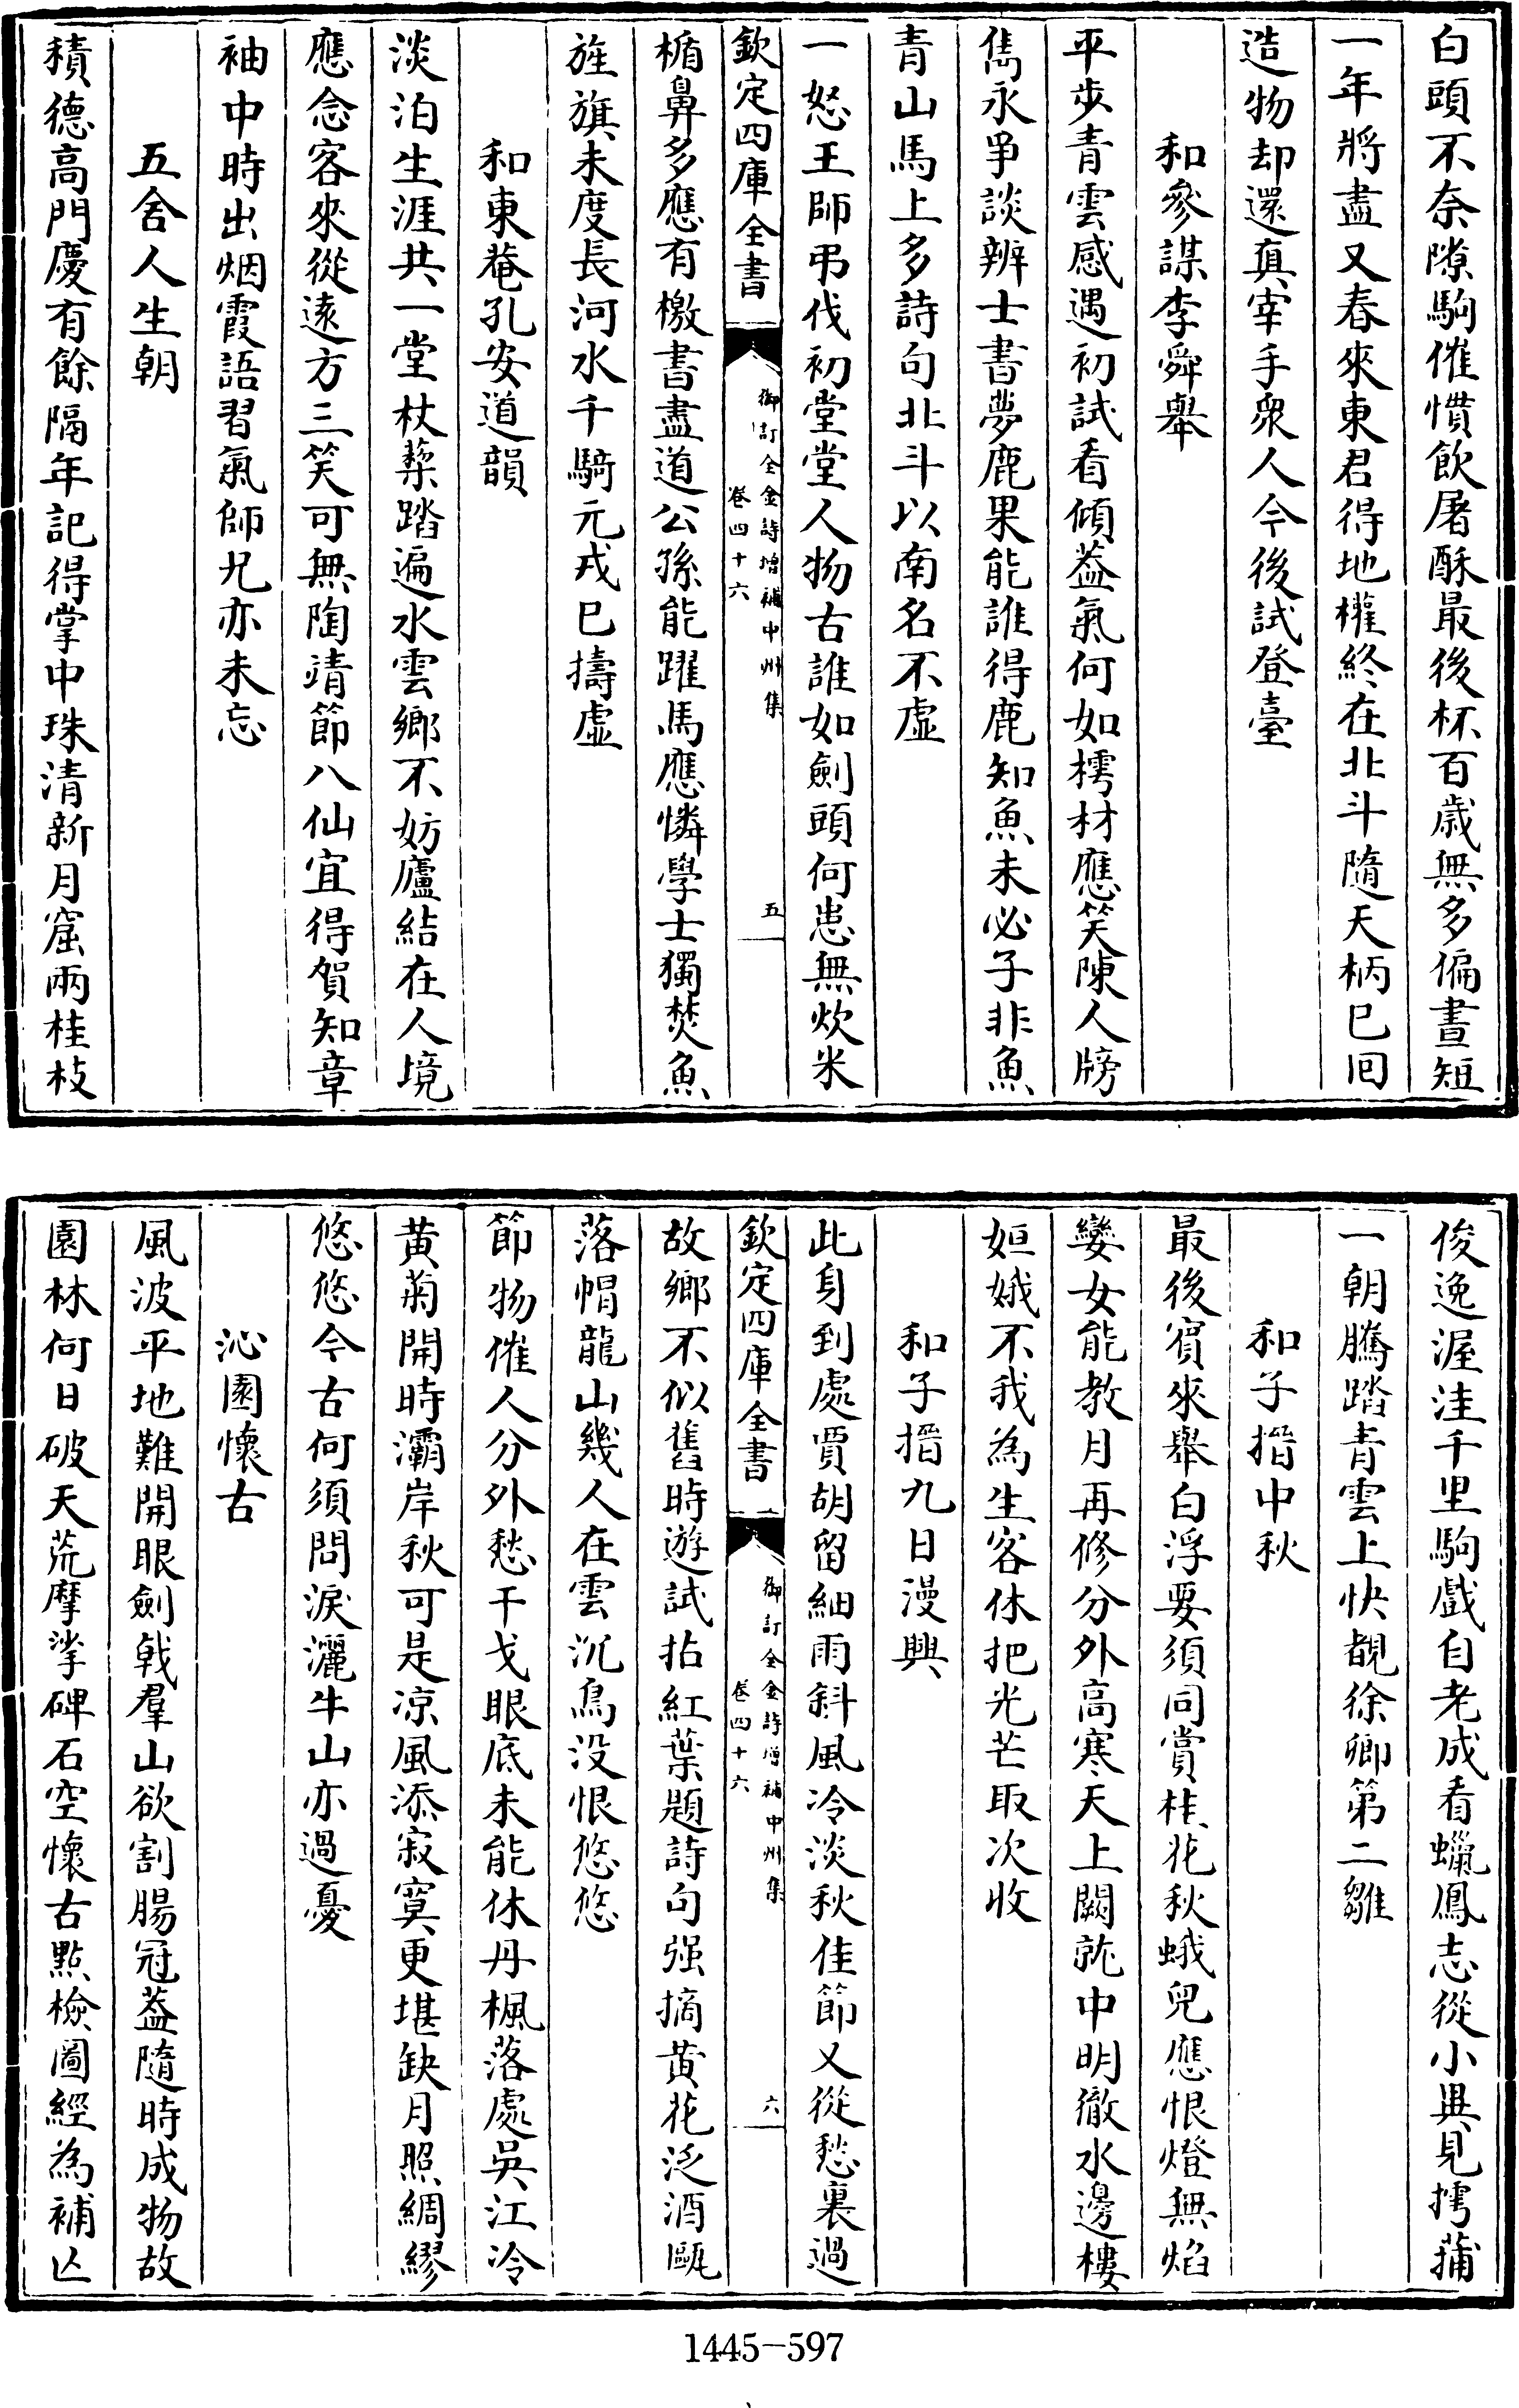 白頭不奈隙駒催慣飲屠酥最後杯百歲無多偏晝短
一年將盡又春來東君得地權終在北斗隨天柄已回
造物却還真宰手衆人今後試登臺
和參謀李舜舉
平步青雲感遇初試看傾葢氣何如樗材應笑陳人牓
雋永爭談辨士書夢鹿果能誰得鹿知魚未必子非魚
青山馬上多詩句北斗以南名不虛
一怒王師弔伐初堂堂人物古誰如劍頭何患無炊米
欽定四庫全書
御訂全金詩增補中州集
卷四十六
五
楯鼻多應有檄書盡道公孫能躍馬應憐學士獨焚魚
旌旗未度長河水千騎元戎已擣虛
和東菴孔安道韻
淡泊生涯共一堂杖藜踏遍水雲鄉不妨廬結在人境
應念客來從遠方三笑可無陶靖節八仙宜得賀知章
袖中時出烟霞語習氣師兄亦未忘
五舍人生朝
積德高門慶有餘隔年記得掌中珠清新月窟兩桂枝
俊逸渥洼千里駒戲自老成看蠟鳳志從小異見摴蒲
一朝騰踏青雲上快覩徐卿第二雛
和子搢中秋
最後賓來舉白浮要須同賞桂花秋蛾兒應恨燈無焰
嫈女能教月再修分外高寒天上闕就中明徹水邊樓
姮娥不我為生客休把光芒取次收
和子搢九日漫興
此身到處賈胡留細雨斜風冷淡秋佳節又從愁裏過
欽定四庫全書
御訂全金詩增補中州集
卷四十六
六
故鄉不似舊時遊試拈紅葉題詩句强摘黄花泛酒甌
落帽龍山幾人在雲沉鳥没恨悠悠
節物催人分外愁干戈眼底未能休丹楓落處吳江冷
黄菊開時灞岸秋可是凉風添寂寞更堪缺月照綢繆
悠悠今古何須問淚灑牛山亦過憂
沁園懷古
風波平地難開眼劍戟羣山欲割腸冠葢隨時成物故
園林何日破天荒摩挲碑石空懷古點檢圖經為補亾
1445-597